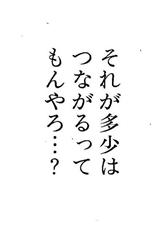 それが多少は
つながるって
もんやろ…?